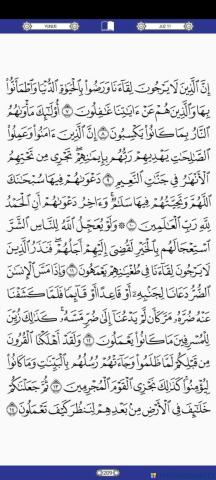 YUNUS JUZ 11
إِنَّ ٱلَّذِينَ لَا يَرْجُونَ لِقَآءَنَا وَرَضُوا۟ بِٱلْحَيَوٰةِ ٱلدُّنْيَا وَٱطْمَأَنُّوا۟
بِهَا وَٱلَّذِينَ هُمْ عَنْ ءَايَٰتِنَا غَٰفِلُونَ ٧ أُو۟لَٰٓئِكَ مَأْوَىٰهُمُ
ٱلنَّارُ بِمَا كَانُوا۟ يَكْسِبُونَ ٨ إِنَّ ٱلَّذِينَ ءَامَنُوا۟ وَعَمِلُوا۟
ٱلصَّٰلِحَٰتِ يَهْدِيهِمْ رَبُّهُم بِإِيمَٰنِهِمْ ۖ تَجْرِى مِن تَحْتِهِمُ
ٱلْأَنْهَٰرُ فِى جَنَّٰتِ ٱلنَّعِيمِ ٩ دَعْوَىٰهُمْ فِيهَا سُبْحَٰنَكَ
ٱللَّهُمَّ وَتَحِيَّتُهُمْ فِيهَا سَلَٰمٌ ۚ وَءَاخِرُ دَعْوَىٰهُمْ أَنِ ٱلْحَمْدُ
لِلَّهِ رَبِّ ٱلْعَٰلَمِينَ ١٠ ۞ وَلَوْ يُعَجِّلُ ٱللَّهُ لِلنَّاسِ ٱلشَّرَّ
ٱسْتِعْجَالَهُم بِٱلْخَيْرِ لَقُضِىَ إِلَيْهِمْ أَجَلُهُمْ ۖ فَنَذَرُ ٱلَّذِينَ
لَا يَرْجُونَ لِقَآءَنَا فِى طُغْيَٰنِهِمْ يَعْمَهُونَ ١١ وَإِذَا مَسَّ ٱلْإِنسَٰنَ
ٱلضُّرُّ دَعَانَا لِجَنۢبِهِۦٓ أَوْ قَاعِدًا أَوْ قَآئِمًا فَلَمَّا كَشَفْنَا
عَنْهُ ضُرَّهُۥ مَرَّ كَأَن لَّمْ يَدْعُنَآ إِلَىٰ ضُرٍّ مَّسَّهُۥ ۚ كَذَٰلِكَ زُيِّنَ
لِلْمُسْرِفِينَ مَا كَانُوا۟ يَعْمَلُونَ ١٢ وَلَقَدْ أَهْلَكْنَا ٱلْقُرُونَ
مِن قَبْلِكُمْ لَمَّا ظَلَمُوا۟ ۙ وَجَآءَتْهُمْ رُسُلُهُم بِٱلْبَيِّنَٰتِ وَمَا كَانُوا۟
لِيُؤْمِنُوا۟ ۚ كَذَٰلِكَ نَجْزِى ٱلْقَوْمَ ٱلْمُجْرِمِينَ ١٣ ثُمَّ جَعَلْنَٰكُمْ
خَلَٰٓئِفَ فِى ٱلْأَرْضِ مِنۢ بَعْدِهِمْ لِنَنظُرَ كَيْفَ تَعْمَلُونَ ١٤
209